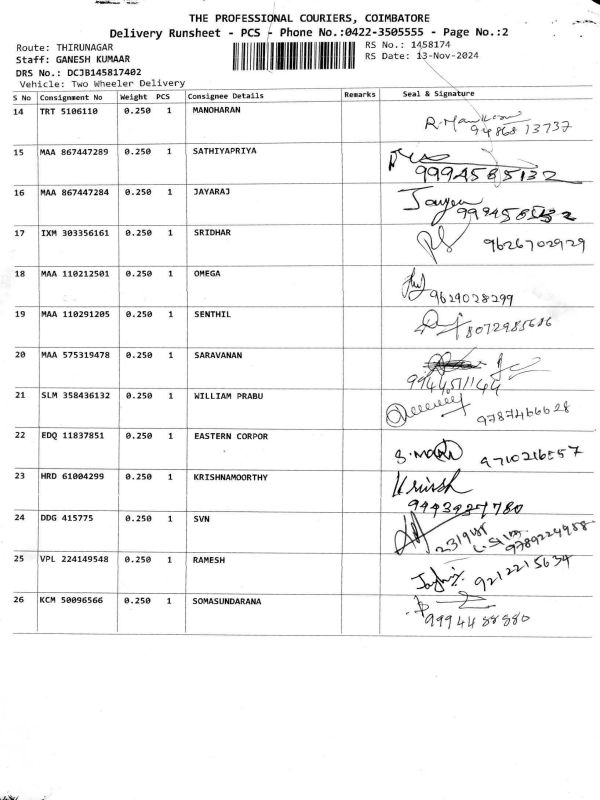 THE PROFESSIONAL COURIERS, COIMBATORE
Delivery Runsheet - PCS - Phone No.:0422-3505555 - Page No.:2
Route: THIRUNAGAR
RS No.: 1458174
Staff: GANESH KUMAAR
RS Date: 13-Nov-2024
DRS No.: DCJB145817402
Vehicle: Two Wheeler Delivery
S No Consignment No Weight PCS Consignee Details Remarks Seal & Signature
14 TRT 5106110 0.250 1 MANOHARAN
9486813737
15 MAA 867447289 0.250 1 SATHIYAPRIYA
9994585132
16 MAA 867447284 0.250 1 JAYARAJ
17 IXM 303356161 0.250 1 SRIDHAR 9626702929
18 MAA 110212501 0.250 1 OMEGA
9629028299
19 MAA 110291205 0.250 1 SENTHIL
20 MAA 575319478 0.250 1 SARAVANAN
21 SLM 358436132 0.250 1 WILLIAM PRABU
9787466628
22 EDQ 11837851 0.250 1 EASTERN CORPOR
23 HRD 61004299 0.250 1 KRISHNAMOORTHY
24 DDG 415775 0.250 1 SVN
9789224988
25 VPL 224149548 0.250 1 RAMESH
9212215634
26 KCM 50096566 0.250 1 SOMASUNDARANA